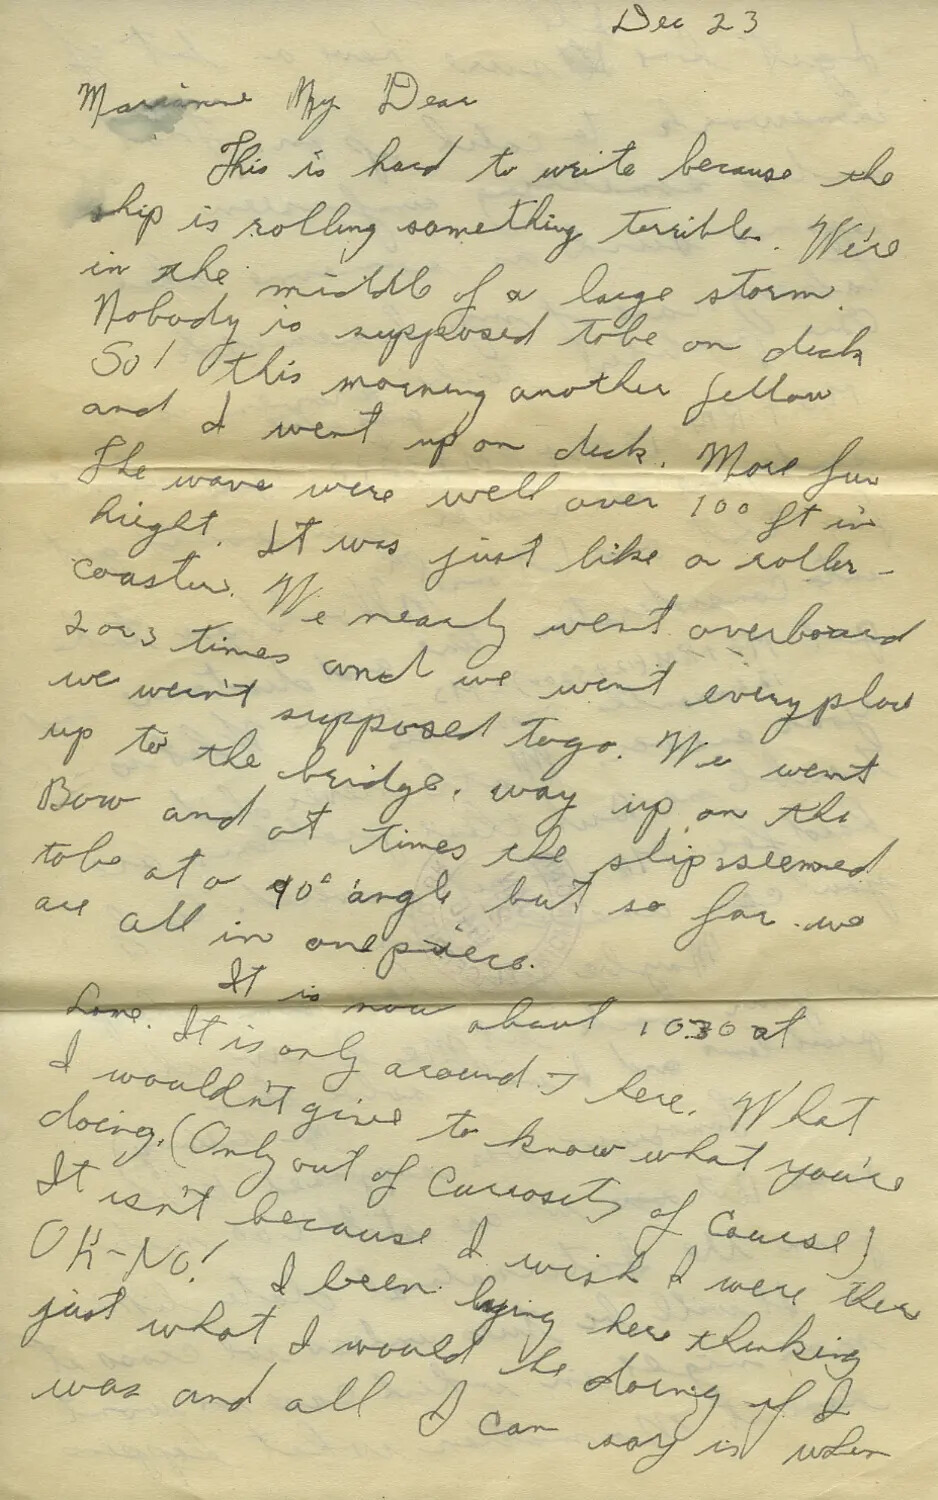 Dec 23
Marianne My Dear
This is hard to write because the
ship is rolling something terrible. We're
in the middle of a large storm.
Nobody is supposed tobe on deck
So! this morning another fellow
and I went up on deck. More fun
The wave were well over 100 ft in
height. It was just like a roller-
coaster. We nearly went overboard
2 or 3 times and we went everyplace
we weren't supposed togo. We went
up to the bridge, way up on the
Bow and at times the ship seemed
tobe at a 90° angle but so far we
are all in one piece.
It is now about 10:30 at
home. It is only around 7 here. What
I wouldn't give to know what you're
doing. (Only out of Curiosity of Course)
It isn't because I wish I were there
OK-NO! I been lying here thinking
just what I would be doing if I
was and all I can say is when